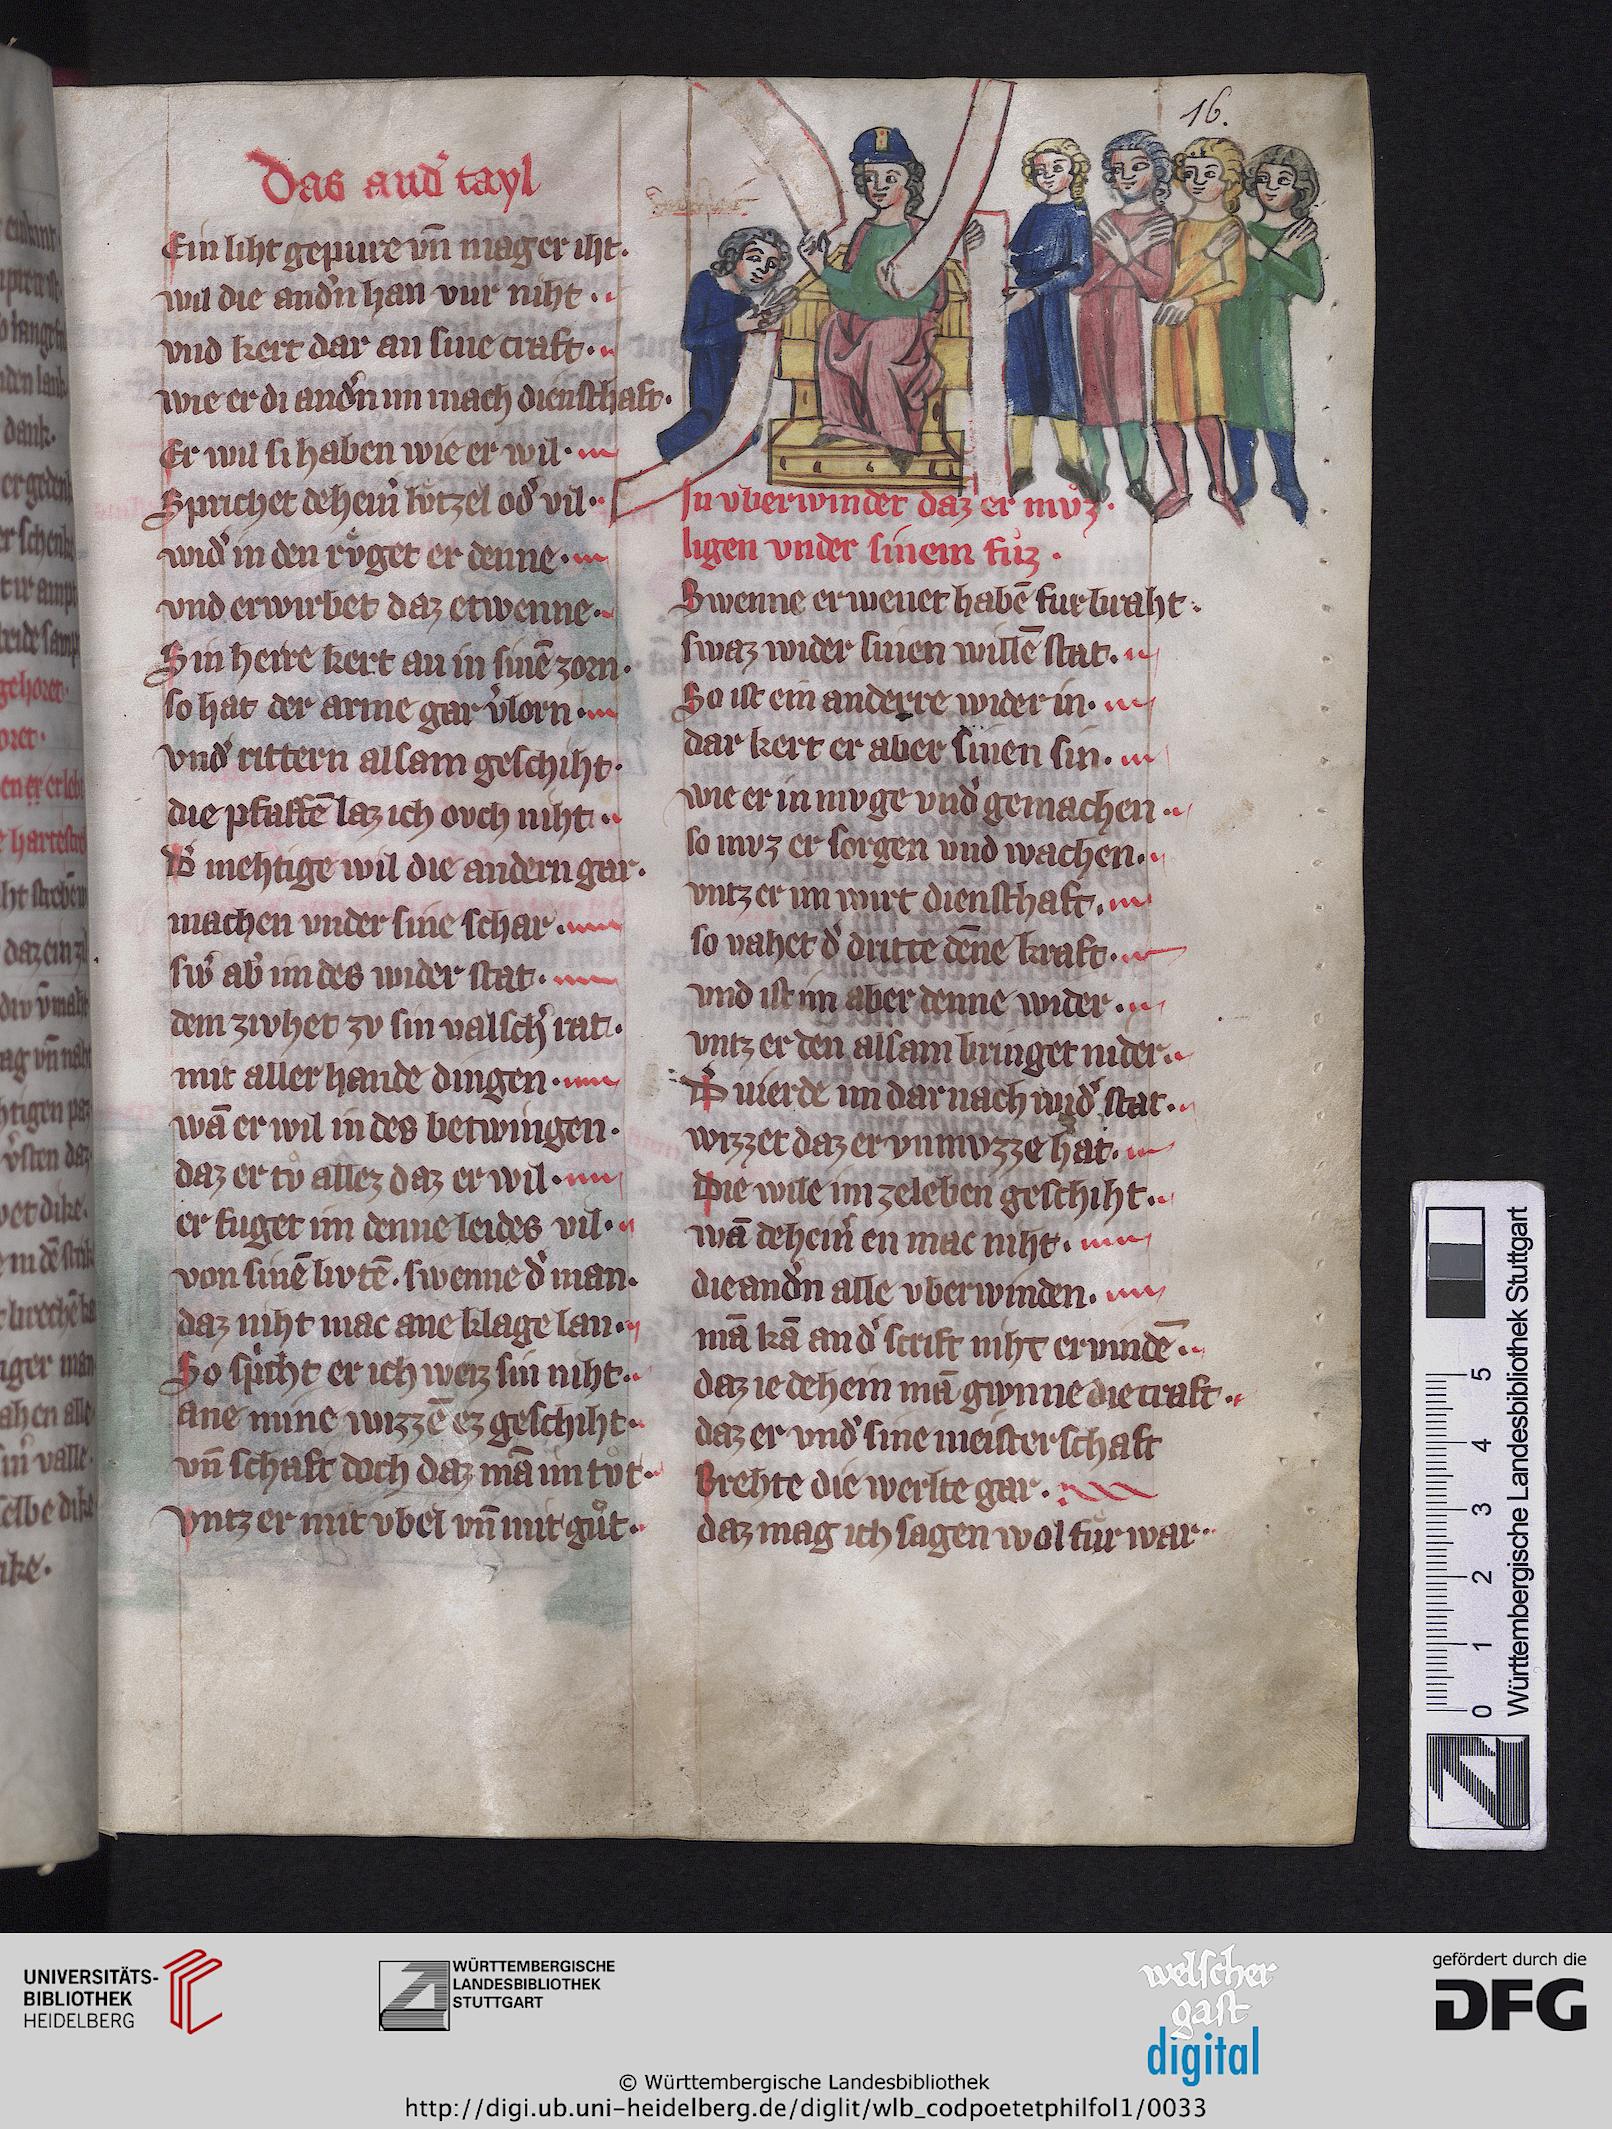 16.
Das and̾ tayl
Ein liht gepure vñ mager iht·
wil die and̾n han vur niht·
vnd kert dar an sine craft·
wie er di and̾n im mach dienschaft·
Er wil si haben wie er wil·
Sprichet dehein̾ lvtzel od̾ vil·
wid̾ in den rvͦget er denne·
vnd erwirbet daz etwenne·
Sin herre kert an in sinē zorn·
so hat der arme gar v̾lorn·
vnd̾ rittern alsam geschiht·
die pfaffē laz ich ovch niht·
D̾ mehtige wil die andern gar·
machen vnder sine schar·
sw̾ ab̾ im des wider stat·
dem zivhet zv sin valsch̾ rat·
mit aller hande dingen·
wā er wil in des betwingen·
daz er tv allez daz er wil·
er fuget im denne leides vil·
von sinē livtē· swenne d̾ man·
daz niht mac ane klage lan·
So sp̾icht er ich weiz sin niht·
ane mine wizzē ez geschiht·
vñ schaft doch daz mā im tvt·
vntz er mit vbel vñ mit gvͦt·
In vberwindet daz er mvͦz·
ligen vnder sinem fuͦz·
Swenne er wenet habē fur braht·
swaz wider sinen willē stat·
So ist ein anderre wider in·
dar kert er aber sinen sin·
wie er in mvge vnd̾ gemachen·
so mvz er sorgen vnd wachen·
vntz er im wirt diensthaft·
so vahet d̾ dritte dēne kraft·
vnd ist im aber denne wider·
vntz er den alsam bringet nider·
D̾ vierde im dar nach wid̾ stat·
wizzet daz er vnmvzze hat·
Die wile im ze leben geschiht·
wā dehein̾ en mac niht·
die and̾n alle vberwinden·
mā kā an d̾ scrift niht ervindē·
daz ie dehein mā gwnne die craft·
daz er vnd̾ sine meisterschaft
Brehte die werlte gar·
daz mag ich sagen wol fur war·
0 1 2 3 4 5
Württembergische Landesbibliothek Stuttgart
UNIVERSITÄTS-
BIBLIOTHEK
HEIDELBERG
WÜRTTEMBERGISCHE
LANDESBIBLIOTHEK
STUTTGART
welscher
gast
digital
gefördert durch die
DFG
© Württembergische Landesbibliothek
http://digi.ub.uni-heidelberg.de/diglit/wlb_codpoetetphilfol1/0033